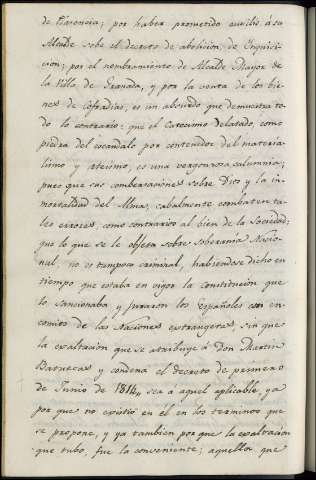 de Plasencia; por haber prometido auxilio á su
Alcalde sobre el decreto de abolicion, de Inquisi-
cion; por el nombramiento de Alcalde Mayor de
la Villa, de Granada, y por la venta de los bie-
nes de Cofradias, es un absurdo que demuestra to-
do lo contrario: que el Catecismo delatado, como
piedra del escandalo por contenedor del materia-
lismo y ateismo, es una vergonzosa calumnia;
pues que sus combersaciones sobre Dios y la in-
mortalidad del Alma, cabalmente combaten ta-
les errores, como contrarios al bien de la Sociedad:
que lo que se le objeta sobre soberania Nacio-
nal, no es tampoco criminal, habiendose dicho en
tiempo que estaba en vigor la constitucion que
lo sancionaba y juraron los Españoles con en-
comio de las Naciones extrangeras, sin que
la exaltacion que se atribuye á Don Martin
Batuecas y condena el decreto de primero
de Junio de 1814, sea á aquel aplicable, ya
por que no existió en el en los terminos que
se propone, y ya tambien por que la exaltacion
que tubo, fue la conveniente; aquella que